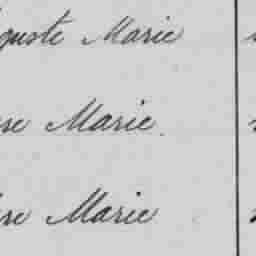 guste Marie
se Marie
se Marie